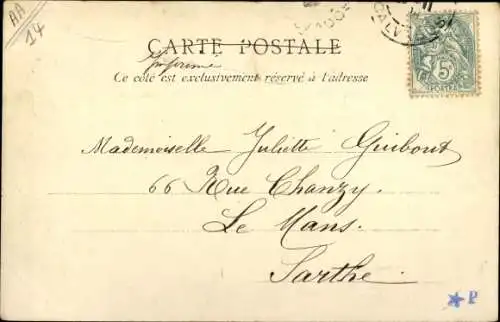 AA
14
CARTE POSTALE
Imprimé
Ce côté est exclusivement réservé à l'adresse
CALVADOS
5
POSTES
Mademoiselle Juliette Guibout
66 Rue Chanzy.
Le Mans.
Sarthe
P